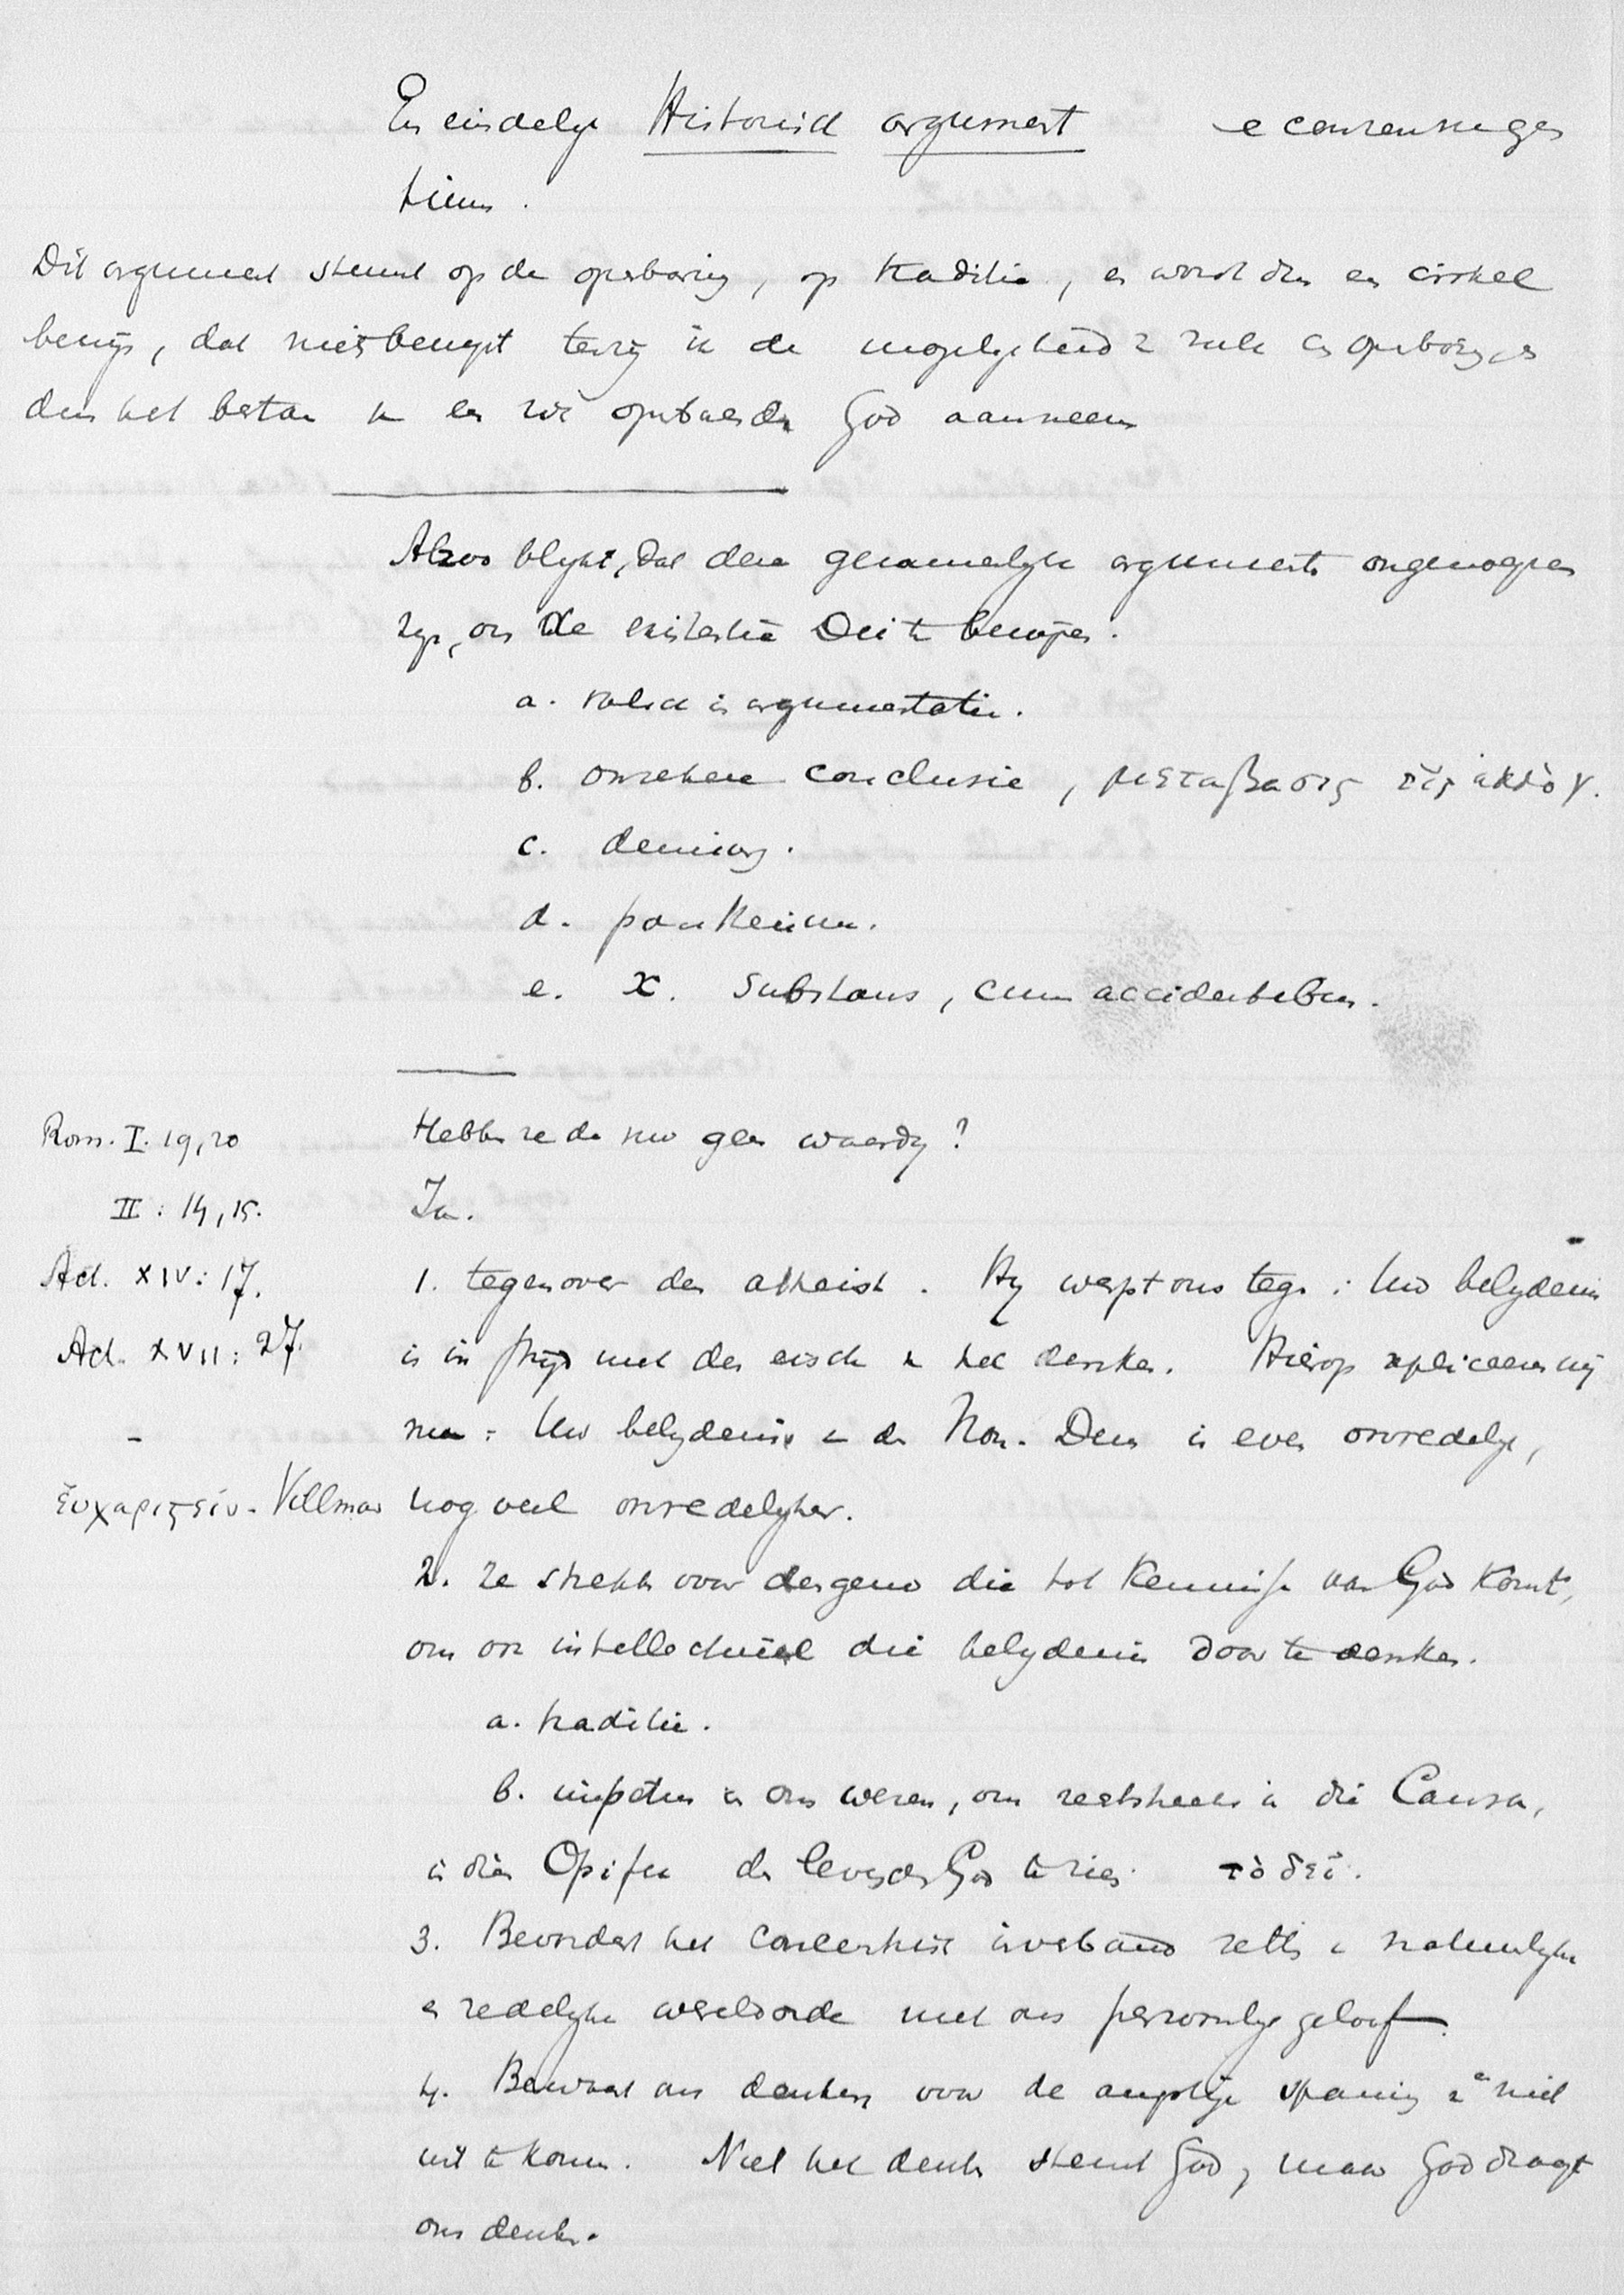 En eindelijk Historisch argument e consensu gen
tium.
Dit argument steunt op de openbaring, op traditie, en wordt dus een cirkel
bewijs, dat niets bewijst tenzij ik de mogelijkheid v. zulk een openbaring en
dus het bestaan v. een zich openbarenden God aanneem
Alzoo blijkt, dat deze gezamenlijke argumenten ongenoegzaam
zijn, om de existentia Dei te bewijzen.
a. zwak in argumentatie.
b. onzekere conclusie, μεταβασις εἰς ἀλλὸ γ.
c. demiurg.
d. pantheisme.
e. X. Substans, cum accidentibus.
Rom. I. 19, 20
II: 14, 15.
Act. XIV: 17.
Act. XVII: 27.
-
Εὐχαριςεῖν - Villmar
Hebben ze dan nu geen waardij?
Ja.
1. tegenover den atheist. Hij werpt ons tegen: Uw belijdenis
is in strijd met den eisch v. het denken. Hierop repliceeren wij
nu: Uw belijdenis v. den Non-Deus is even onredelijk,
nog veel onredelijker.
2. ze strekken voor dengene die tot Kennisse van God Komt,
om ook intellectueel die belijdenis door te denken.
a. traditie.
b. impetus in ons wezen, om rechtstreeks in die Causa,
in dien Opifex den levenden God te zien. τὸ δεῖ.
3. Bevordert het concentrisch inverband zetten v. natuurlijke
en redelijke wereldorde met ons persoonlijk geloof.
4. Bewaart ons denken voor de angstige spanning v. er niet
uit te komen. Niet het denken steunt God, maar God draagt
ons denken.